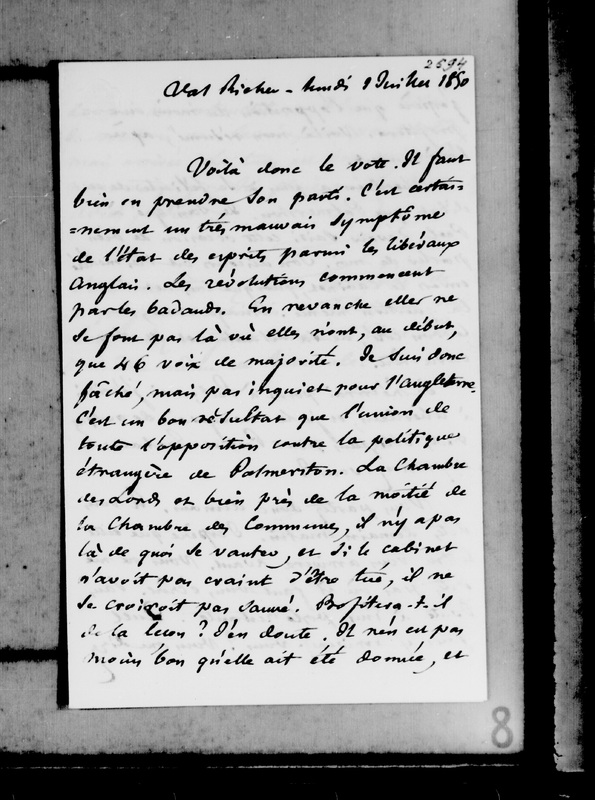 2694
Val Richer - lundi 1 Juillet 1850
Voilà donc le vote. Il faut
bien en prendre son parti. C'est certai-
=nement un très mauvais symptôme
de l'état des esprits parmi les libéraux
Anglais. Les révolutions commencent
par les badauds. En revanche elles ne
se font pas là où elles n'ont, au début,
que 46 voix de majorité. Je suis donc
fâché, mais pas inquiet pour l'Angleterre.
C'est un bon résultat que l'union de
toute l'opposition contre la politique
étrangère de Palmerston. La Chambre
des Lords et bien près de la moitié de
la Chambre des Communes, il n'y a pas
là de quoi se vanter, et si le cabinet
n'avoit pas craint d'être tué, il ne
se croiroit pas sauvé. Profitera-t-il
de la leçon? J'en doute. Il n'en est pas
moins bon qu'elle ait été donnée, et
8